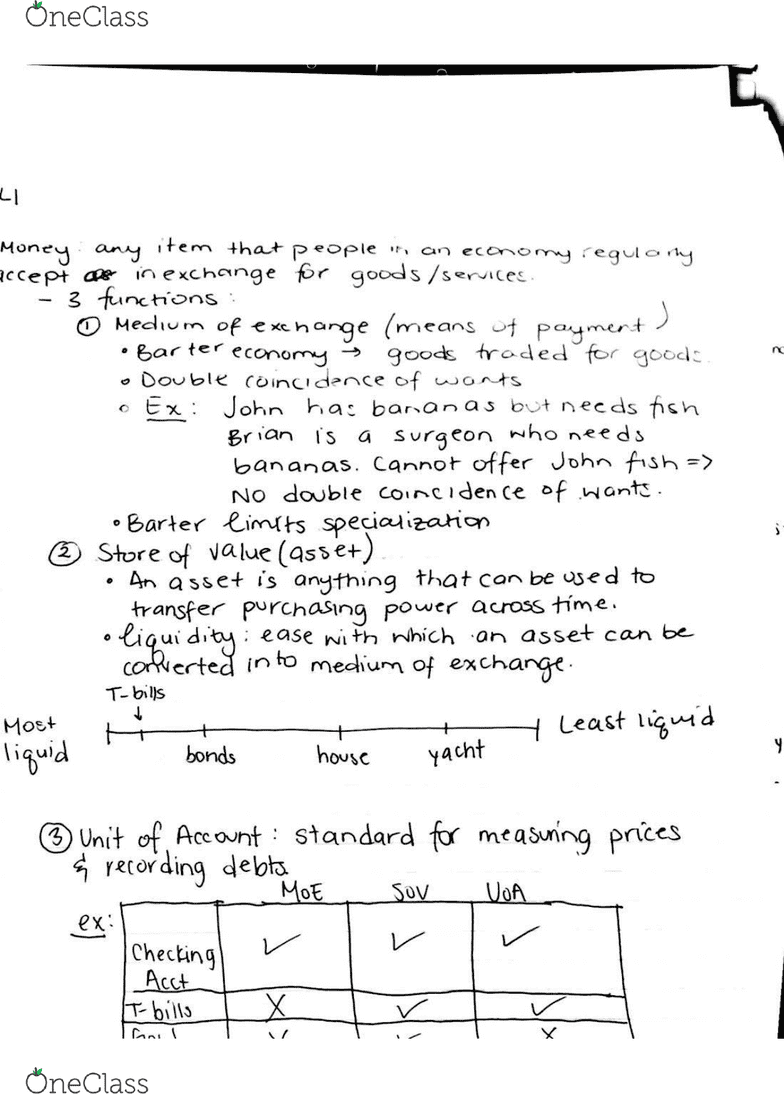 OneClass
L1
Money: any item that people in an economy regularly
accept in exchange for goods/services.
- 3 functions:
① Medium of exchange (means of payment)
• Barter economy → goods traded for goods.
• Double coincidence of wants
• Ex: John has bananas but needs fish
Brian is a surgeon who needs
bananas. Cannot offer John fish =>
No double coincidence of wants.
• Barter limits specialization
② Store of value (asset)
• An asset is anything that can be used to
transfer purchasing power across time.
• liquidity: ease with which an asset can be
converted into medium of exchange.
T-bills
↓
Most liquid
Least liquid
bonds house yacht
③ Unit of Account: standard for measuring prices
& recording debts
MoE SoV UoA
ex:
Checking Acct ✓ ✓ ✓
T-bills X ✓ ✓
X
OneClass